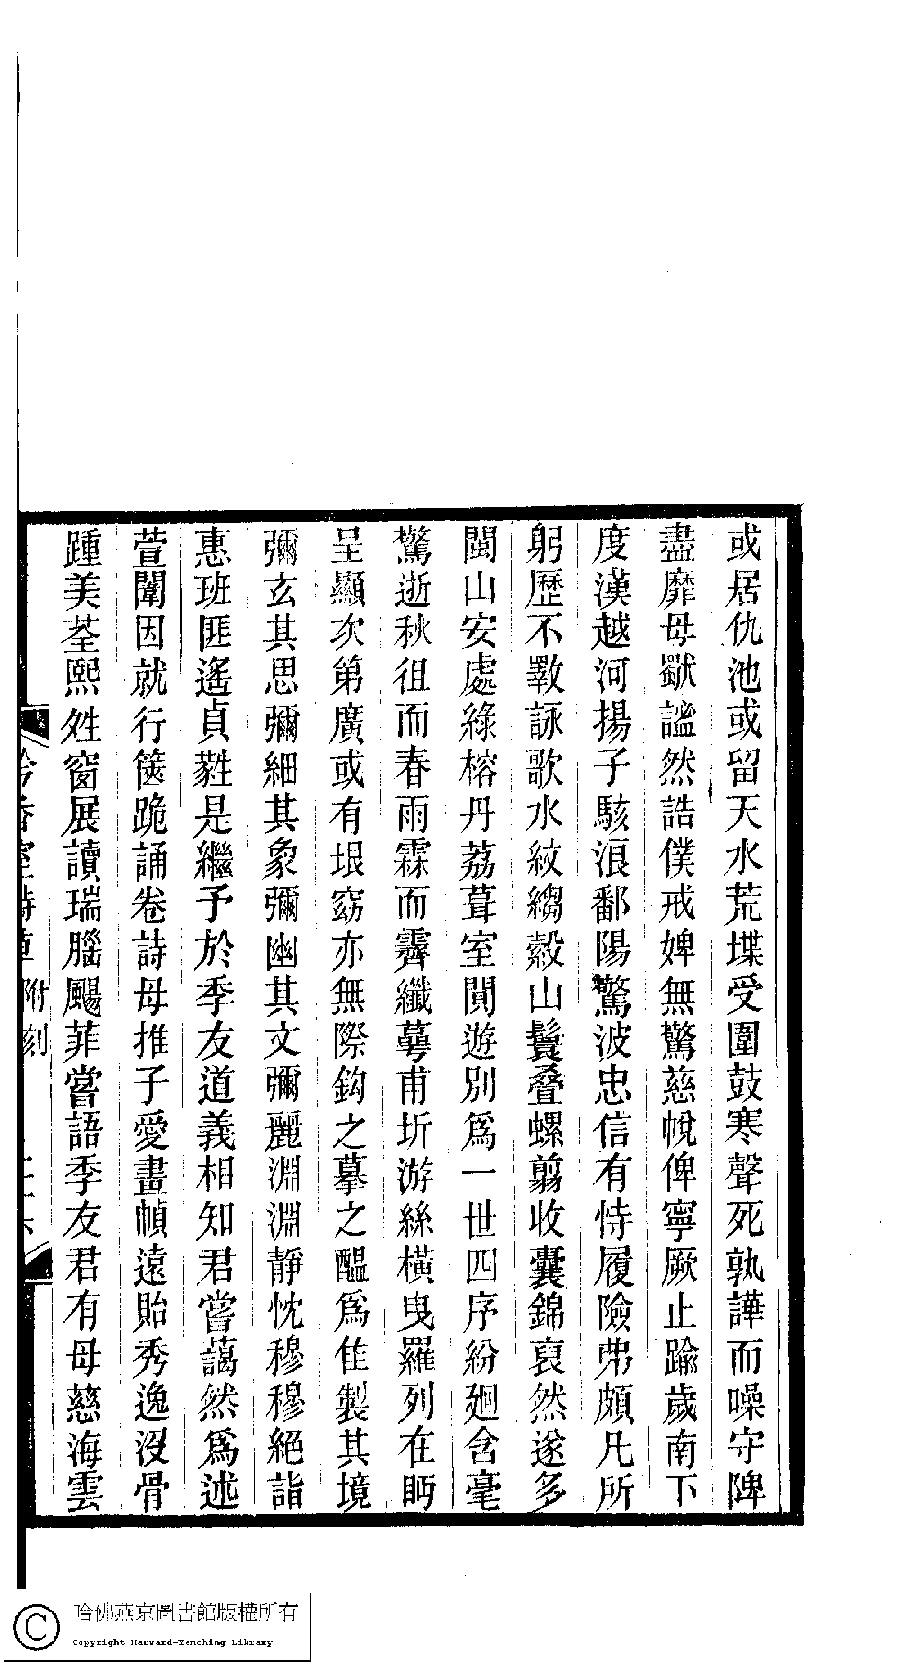 或居仇池或留天水荒堞受圍鼓寒聲死孰譁而噪守陴
盡靡母歔謐然誥僕戒婢無驚慈帨俾寧厥止踰歲南下
度漢越河揚子駭浪鄱陽驚波忠信有恃履險弗頗凡所
躬歷不斁詠歌水紋縐縠山鬟叠螺翦收囊錦裒然遂多
閩山安處綠榕丹荔葺室閒遊別爲一世四序紛廻含毫
驚逝秋徂而春雨霖而霽纖萼甫圻游絲橫曳羅列在眄
呈顯次第廣或有垠窈亦無際鈎之摹之醞爲隹製其境
彌玄其思彌細其象彌幽其文彌麗淵淵靜忱穆穆絕詣
惠班匪遙貞蕤是繼予於季友道義相知君嘗藹然爲述
萱闈因就行篋跪誦卷詩母推子愛畫幀遠貽秀逸沒骨
踵美荃熙姓窗展讀瑞腦颺菲嘗語季友君有母慈海雲
吟香室詩草 附刻
哈佛燕京圖書館版權所有
Copyright Harvard-Yenching Library